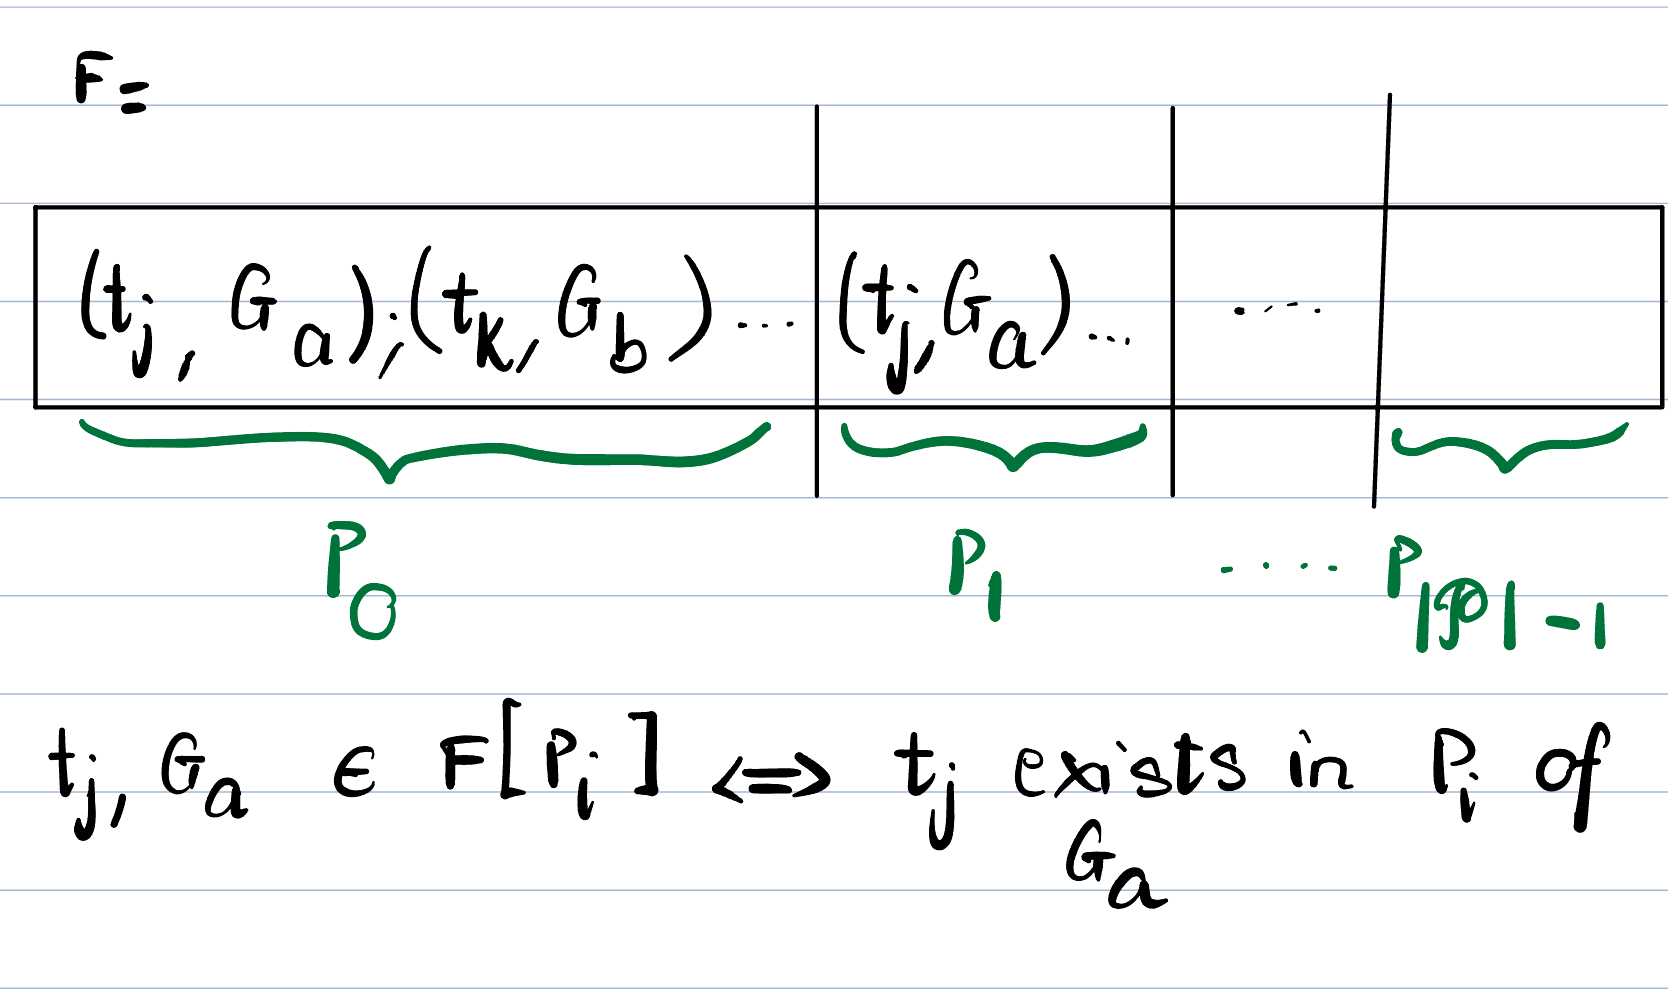 F =
(t_j, G_a); (t_k, G_b) ... (t_j, G_a) ... ....
P_0 P_1 .... P_{|𝒫|-1}
t_j, G_a ∈ F[P_i] ⇔ t_j exists in P_i of
G_a